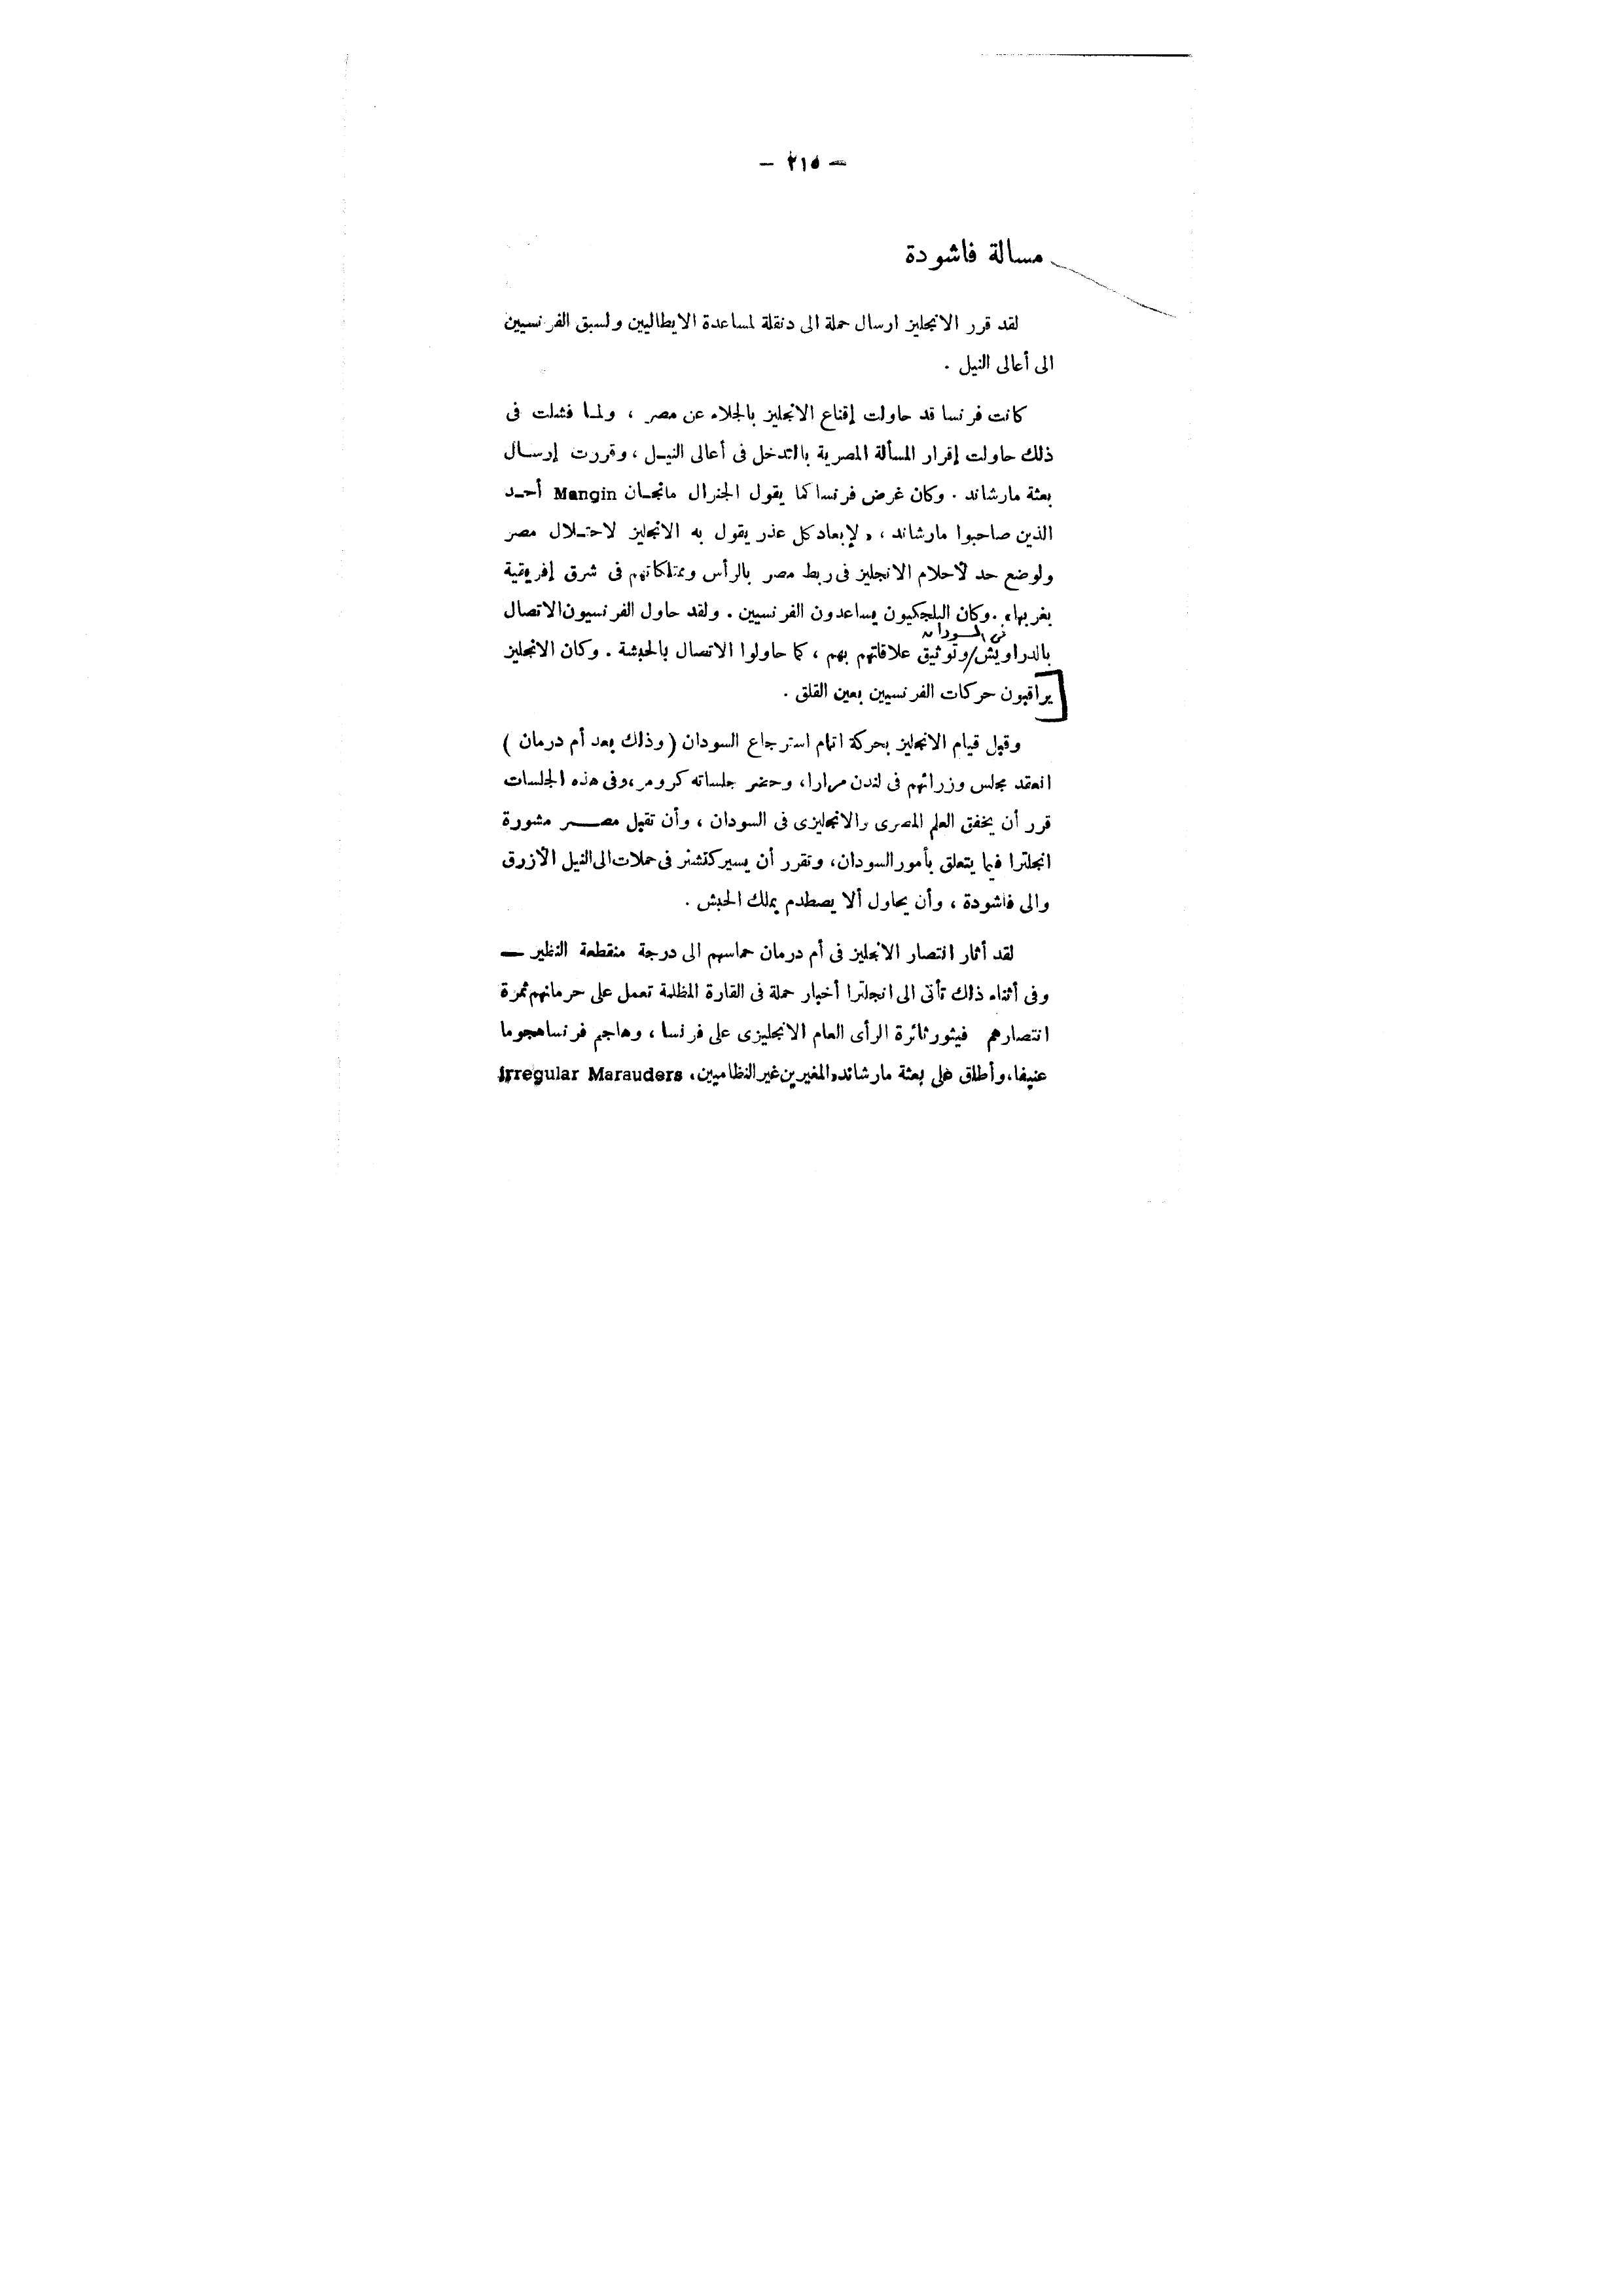 — ٢١٥ —
مسالة فاشودة
لقد قرر الانجليز ارسال حملة الى دنقلة لمساعدة الايطاليين ولسبق الفرنسيين
الى أعالى النيل .
كانت فرنسا قد حاولت إقناع الانجليز بالجلاء عن مصر ، ولما فشلت فى
ذلك حاولت إقرار المسألة المصرية بالتدخل فى أعالى النيـل ، وقررت إرسـال
بعثة مارشاند . وكان غرض فرنسا كما يقول الجنرال مانجـان Mangin أحـد
الذين صاحبوا مارشاند ، « لإبعاد كل عذر يقول به الانجليز لاحتـلال مصر
ولوضع حد لأحلام الانجليز فى ربط مصر بالرأس وممتلكاتهم فى شرق إفريقية
بغربها» . وكان البلجيكيون يساعدون الفرنسيين . ولقد حاول الفرنسيون الاتصال
فى السودان
بالدراويش/وتوثيق علاقاتهم بهم ، كما حاولوا الاتصال بالحبشة . وكان الانجليز
يراقبون حركات الفرنسيين بعين القلق .
وقبل قيام الانجليز بحركة اتمام استرجاع السودان ( وذلك بعد أم درمان )
انعقد مجلس وزرائهم فى لندن مرارا، وحضر جلساته كرومر، وفى هذه الجلسات
قرر أن يخفق العلم المصرى والانجليزى فى السودان ، وأن تقبل مصـــر مشورة
انجلترا فيما يتعلق بأمور السودان، وتقرر أن يسير كتشنر فى حملات الى النيل الأزرق
والى فاشودة ، وأن يحاول ألا يصطدم بملك الحبش .
لقد أثار انتصار الانجليز فى أم درمان حماسهم الى درجة منقطعة النظير —
وفى أثناء ذلك تأتى الى انجلترا أخبار حملة فى القارة المظلمة تعمل على حرمانهم ثمرة
انتصارهم فيثور ثائرة الرأى العام الانجليزى على فرنسا ، وهاجم فرنسا هجوما
عنيفا، وأطلق على بعثة مارشاند «المغيرين غير النظاميين» Irregular Marauders